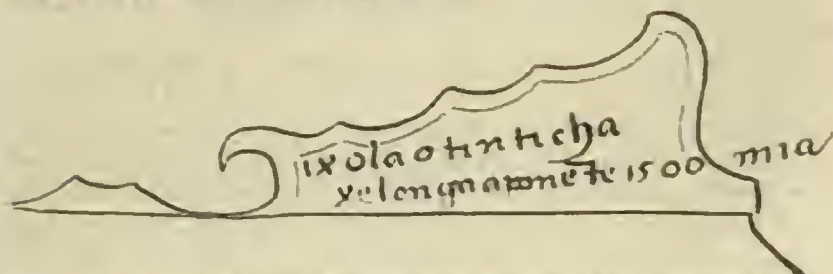 ixola otinticha
xe longa a ponẽte 1500 mia